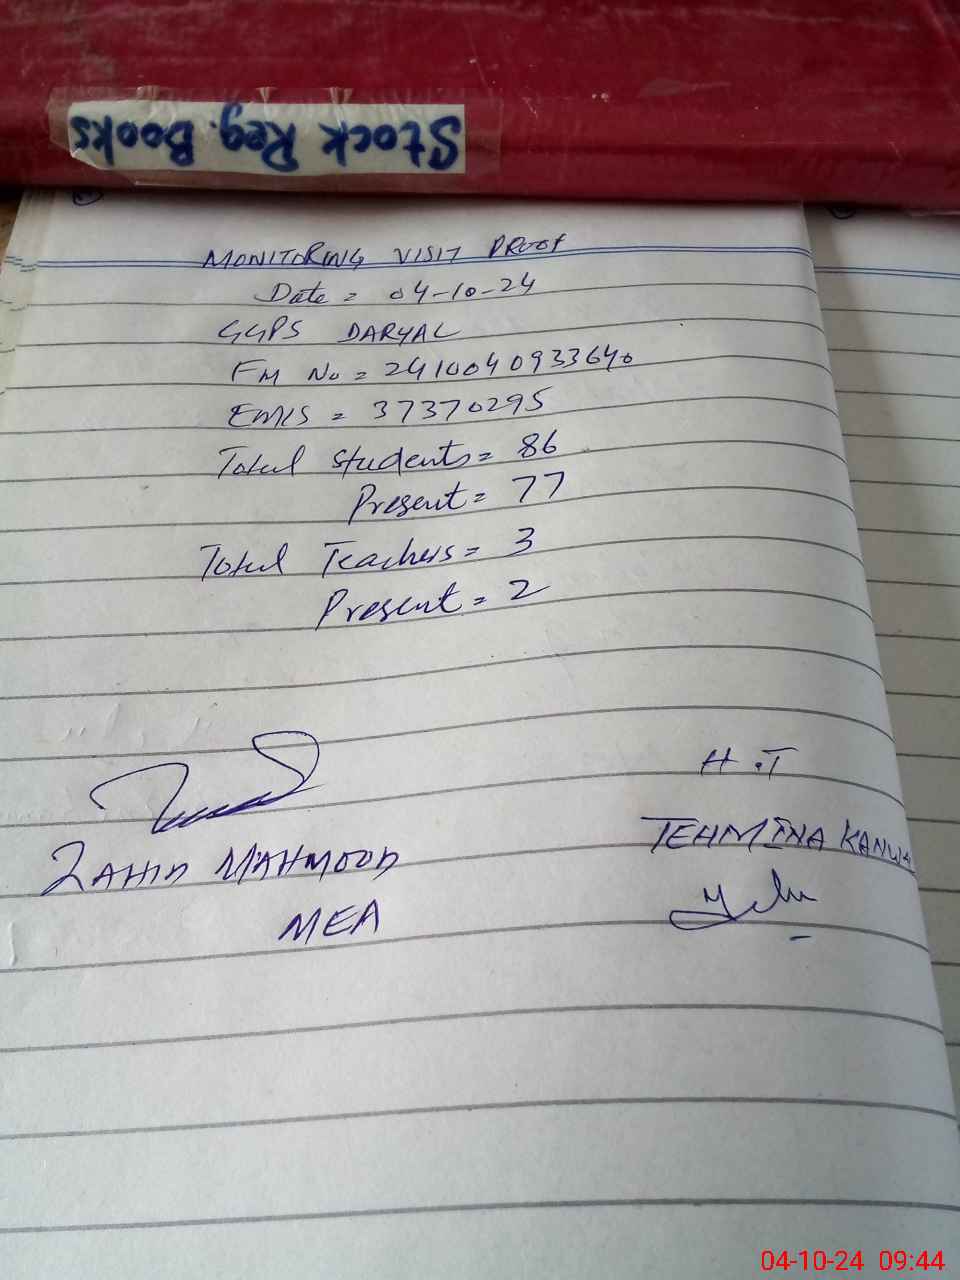 Stock Reg. Books
MONITORING VISIT PROOF
Date = 04-10-24
GGPS DARYAL
FM No = 2410040933640
EMIS = 37370295
Total Students = 86
Present = 77
Total Teachers = 3
Present = 2
H.T
ZAHID MAHMOOD
TEHMINA KANWA
MEA
04-10-24 09:44